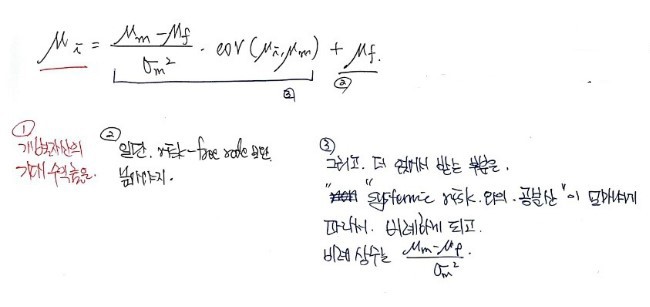 μi = (μm − μf) / σm² · cov(μi, μm) + μf.
③ ②
①
개별자산의
기대 수익률은.
②
일단. risk-free rate 보단
넘어야지.
③
그리고. 더 얹어서 받는 부분은.
"systemic risk.와의.공분산"이
따라서. 비례하게 되고.
비례 상수는 (μm − μf) / σm²